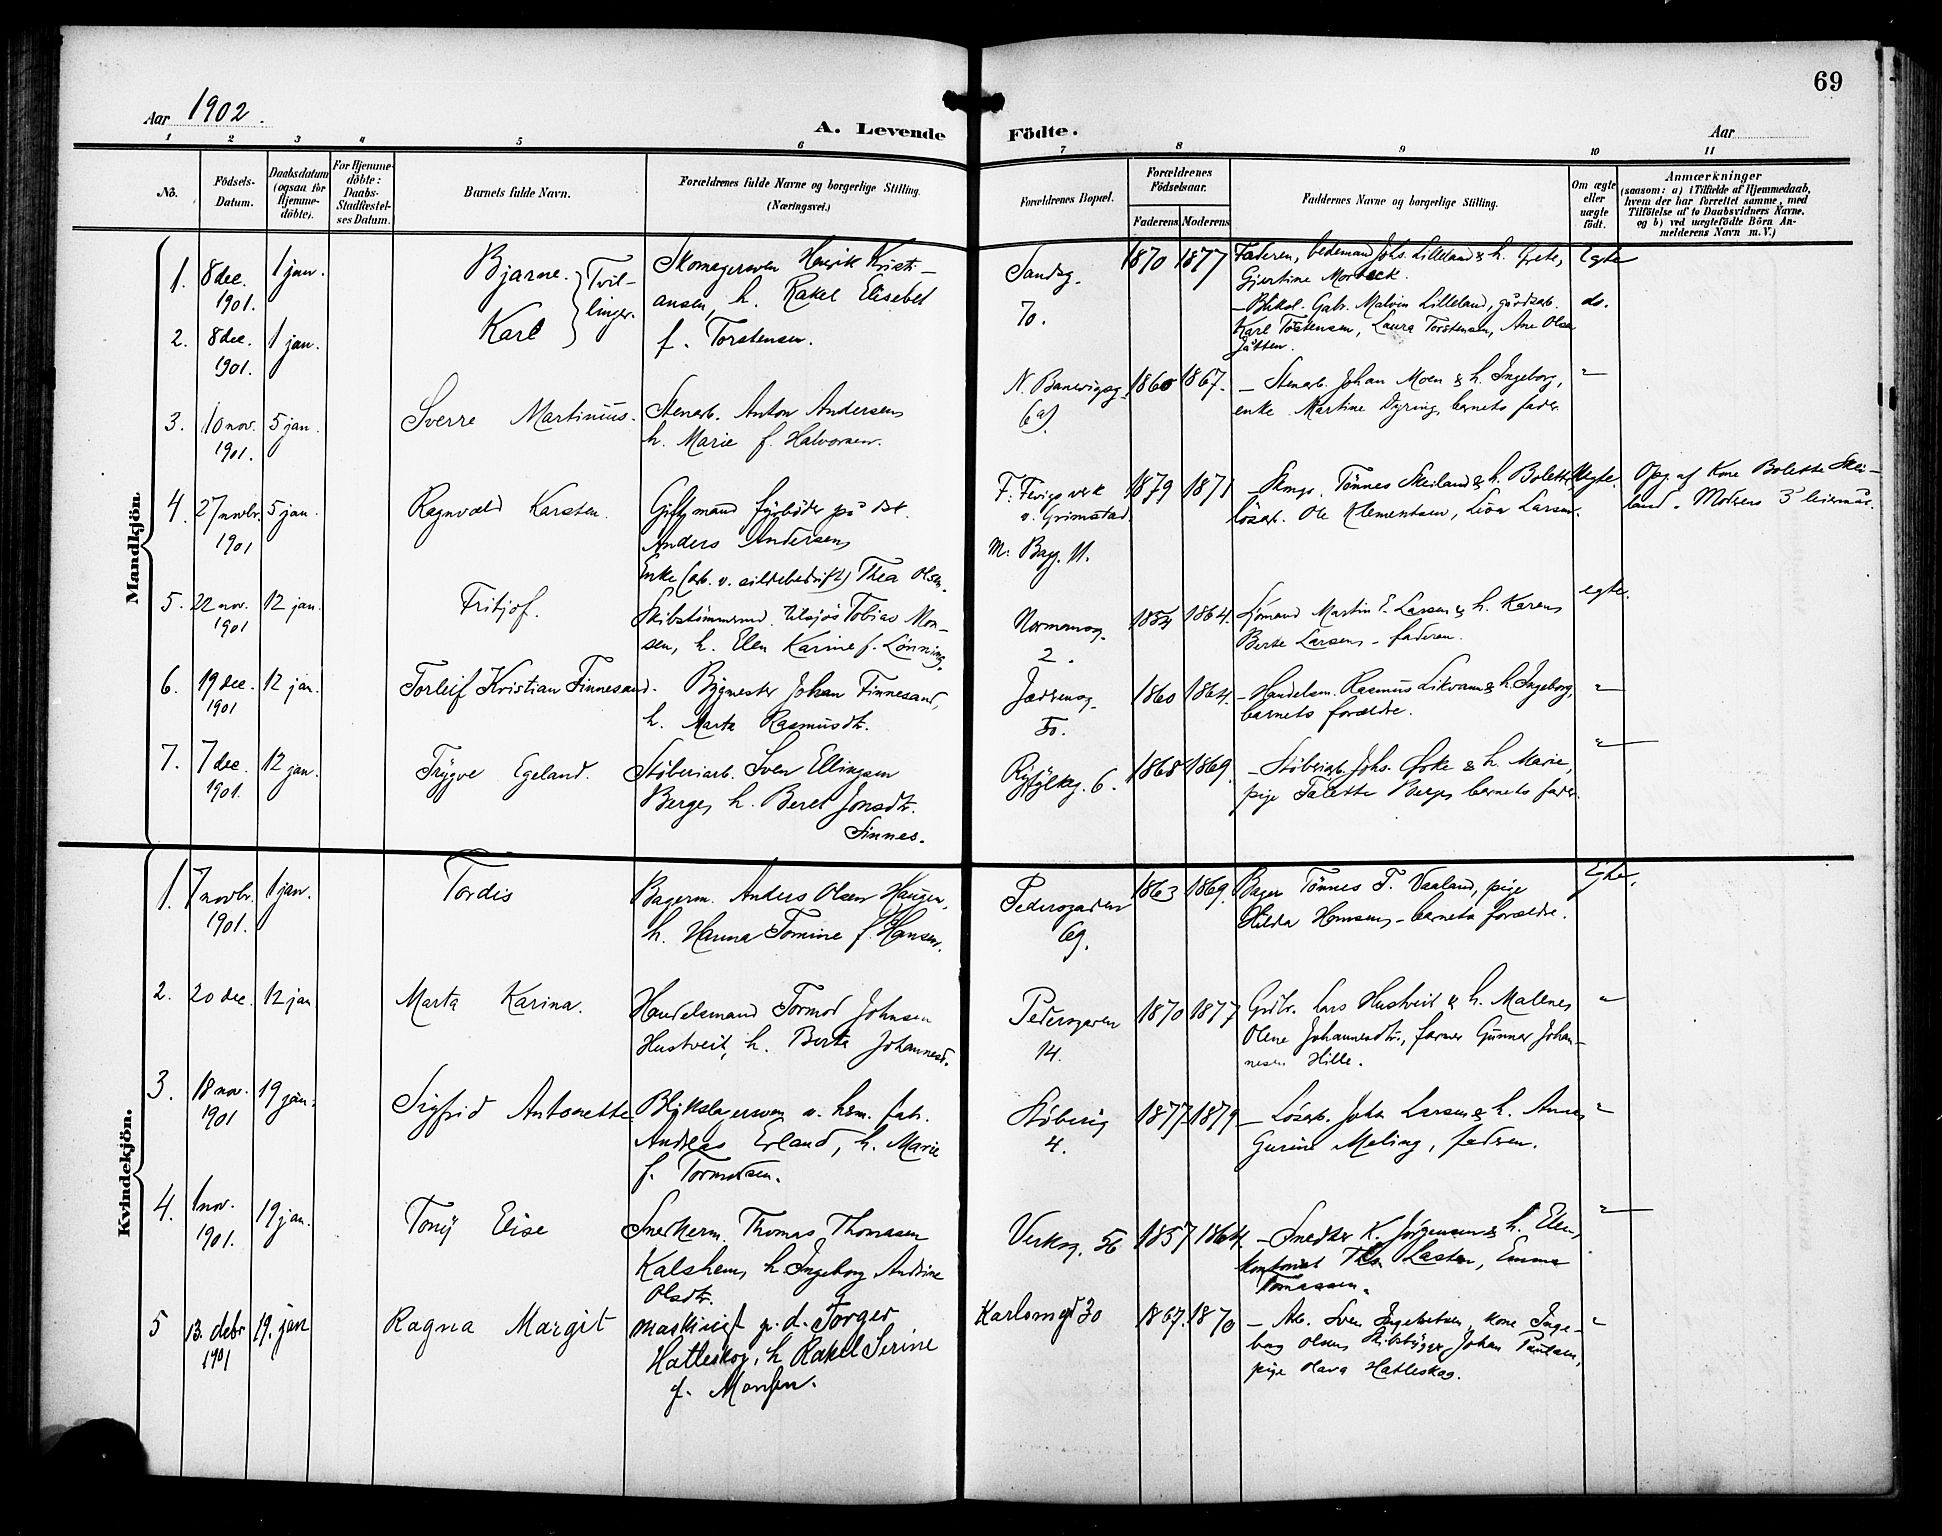 69
Aar 1902.
A. Levende Födte.
Aar
1 2 3 4 5 6 7 8 9 10 11
No.
Födsels-
Datum.
Daabsdatum
(ogsaa for
Hjemme-
döbte).
For Hjemme-
döbte:
Daabs-
Stadfæstel-
ses Datum.
Barnets fulde Navn.
Forældrenes fulde Navne og borgerlige Stilling.
(Næringsvei.)
Forældrenes Bopæl.
Forældrenes
Födselsaar.
Faderens Moderens
Faddernes Navne og borgerlige Stilling.
Om ægte
eller
uægte
födt.
Anmærkninger
(saasom: a) i Tilfælde af Hjemmedaab,
hvem der har forrettet samme, med
Tilföielse af to Daabsvidners Navne,
og b) ved uægtefödte Börn An-
melderens Navn m. V.)
Mandkjön
1. 8 dec. 1901. 1 jan. Bjarne. } Tvil-
2. 8 dec. 1901. 1 jan. Karl } linger.
Skomagersven Henrik Kristi-
ansen, h. Rakel Elisebet
f. Torstensen.
Sandsg.
70.
1870 1877
Faderen, vedemand Johs. Lilleland & h. Grete,
Gjertine Morbeck. Egte
– Bliksl. Gabr. Malvin Lilleland, gårdsarb. do.
Karl Torstensen, Laura Torstensen, Ane Olsen
Jåtten.
3. 10 nov. 1901. 5 jan. Sverre Martinius.
Stenarb. Anton Andersen,
h. Marie f. Halvorsen.
N. Banevigsg.
6 a).
1860 1867.
– Stenarb. Johan Moen & h. Ingeborg, "
enke Martine Dyring, barnets fader.
4. 27 novbr. 1901 5 jan. Ragnvald Karsten.
Gift mand fyrbøder på D/S
Anders Andersen,
Enke (arb. v. sildebedrift) Thea Olsen.
F: Fevigs verk
v. Grimstad.
M: Bagg. 11.
1879 1871
– Skomgs. Tönnes Skeiland & h. Bolette, Uegte.
Lösarb. Ole Klementsen, Lina Larsen.
Opg. af Kone Bolette Skei-
land. Moderens 3' leiermål.
5. 22 nov. 1901 12 jan. Fritjof.
Skibstömmermd. tilsjös Tobias Mon-
sen, h. Elen Karine f. Lönning.
Normansg.
2.
1854 1864.
Sjömand Martin E. Larsen & h. Karen, egte.
Berte Larsen, – faderen.
6. 19 dec. 1901 12 jan. Torleif Kristian Finnesand.
Bygmester Johan Finnesand,
h. Marta Rasmusdtr.
Jædrensg.
50.
1860 1864.
– Handelsm. Rasmus Likvam & h. Ingeborg, "
barnets forældre.
7. 7 dec. 1901. 12 jan. Trygve Egeland.
Støberiarb. Sven Ellingsen
Berge, h. Beret Jonsdtr.
Sinnes.
Ryfylkeg. 6.
1868 1869.
– Støberiarb. Johs. Øske & h. Marie, "
pige Talette Berge, barnets fader.
Kvindekjön.
1. 7 novbr. 1901. 1 jan. Tordis
Bagerm. Anders Olsen Haugen,
h. Hanna Tomine f. Hansen.
Pedersgaden
69.
1863 1869.
Bager Tönnes T. Vaaland, pige Egte.
Hilda Hansen, – barnets forældre.
2. 20 dec. 12 jan Marta Karina.
Handelsmand Tormod Johnsen
Hustveit, h. Berta Johannesd.
Pedersgaden
14.
1870 1877
Grdbr. Lars Hustveit & h. Malene, "
Olene Johannesdtr., farmer Gunnar Johan-
nesen Hille.
3. 18 nov. 1901 19 jan. Sigfrid Antonette
Blikslagersven v. hsm. fabr.
Andreas Erland, h. Marie
f. Tormodsen.
Støberig
4.
1877. 1879
– Lösarb. John Larsen & h. Anna "
Gurine Meling, faderen.
4. 1 nov. 1901. 19 jan. Tony Elise
Snekkerm. Thomas Thomassen
Kalshem, h. Ingeborg Andrine
Olsdtr.
Verksg. 56
1857 1864.
– Snedker K. Jørgensen & h. Elen, "
kontorist Ths. Lasten, Emma
Tomassen.
5 13. debr 1901 19. jan Ragna Margit
maskinist p.d. Torger
Hatleskog, h. Rakel Serine
f. Monsen.
Karlsmgd 30
1867. 1870
– Arb. Sven Ingebretsen, kone Inge- "
borg Olsen, Skibsbygger Johan Paulsen,
pige Hava Hatleskog.